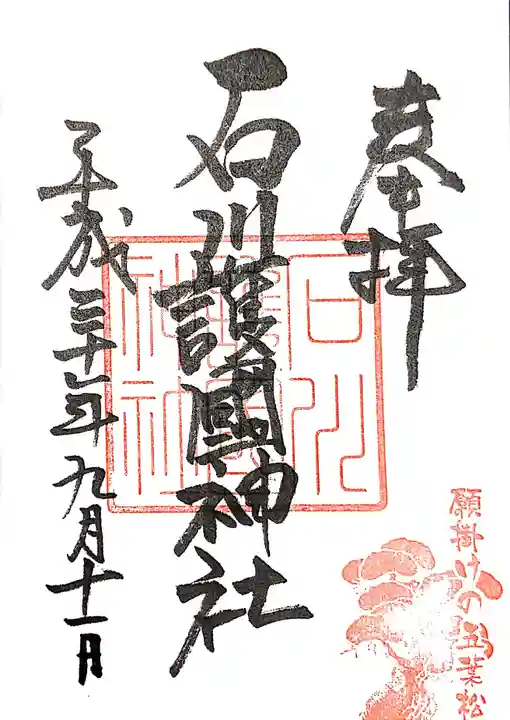 奉拝
石川護國神社
平成三十年九月十一日
石川
護國
神社
願掛けの五葉松